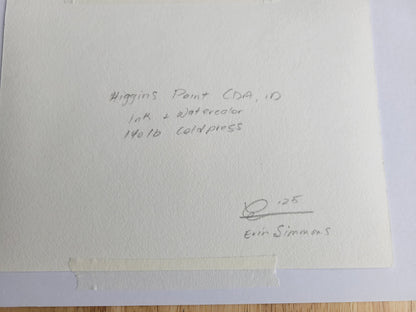 Higgins Point CDA, ID
Ink + Watercolor
140lb Coldpress
'25
Erin Simmons